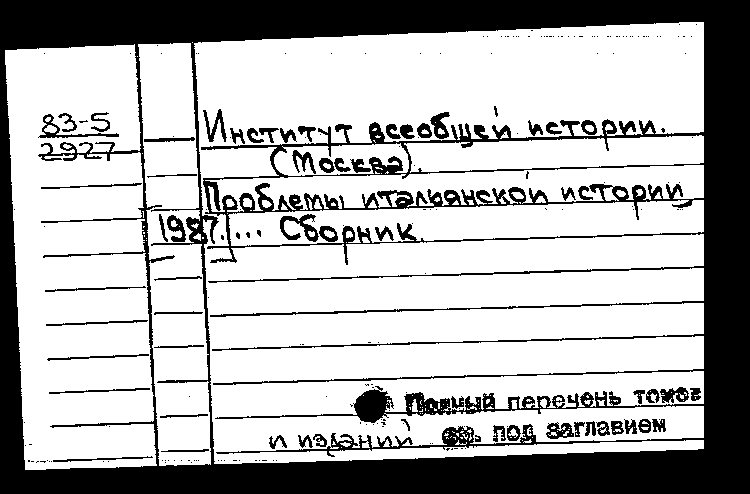 83-5
2927
Институт всеобщей истории.
(Москва).
Проблемы итальянской истории
[1987.]... Сборник.
Полный перечень томов
и изданий см. под заглавием